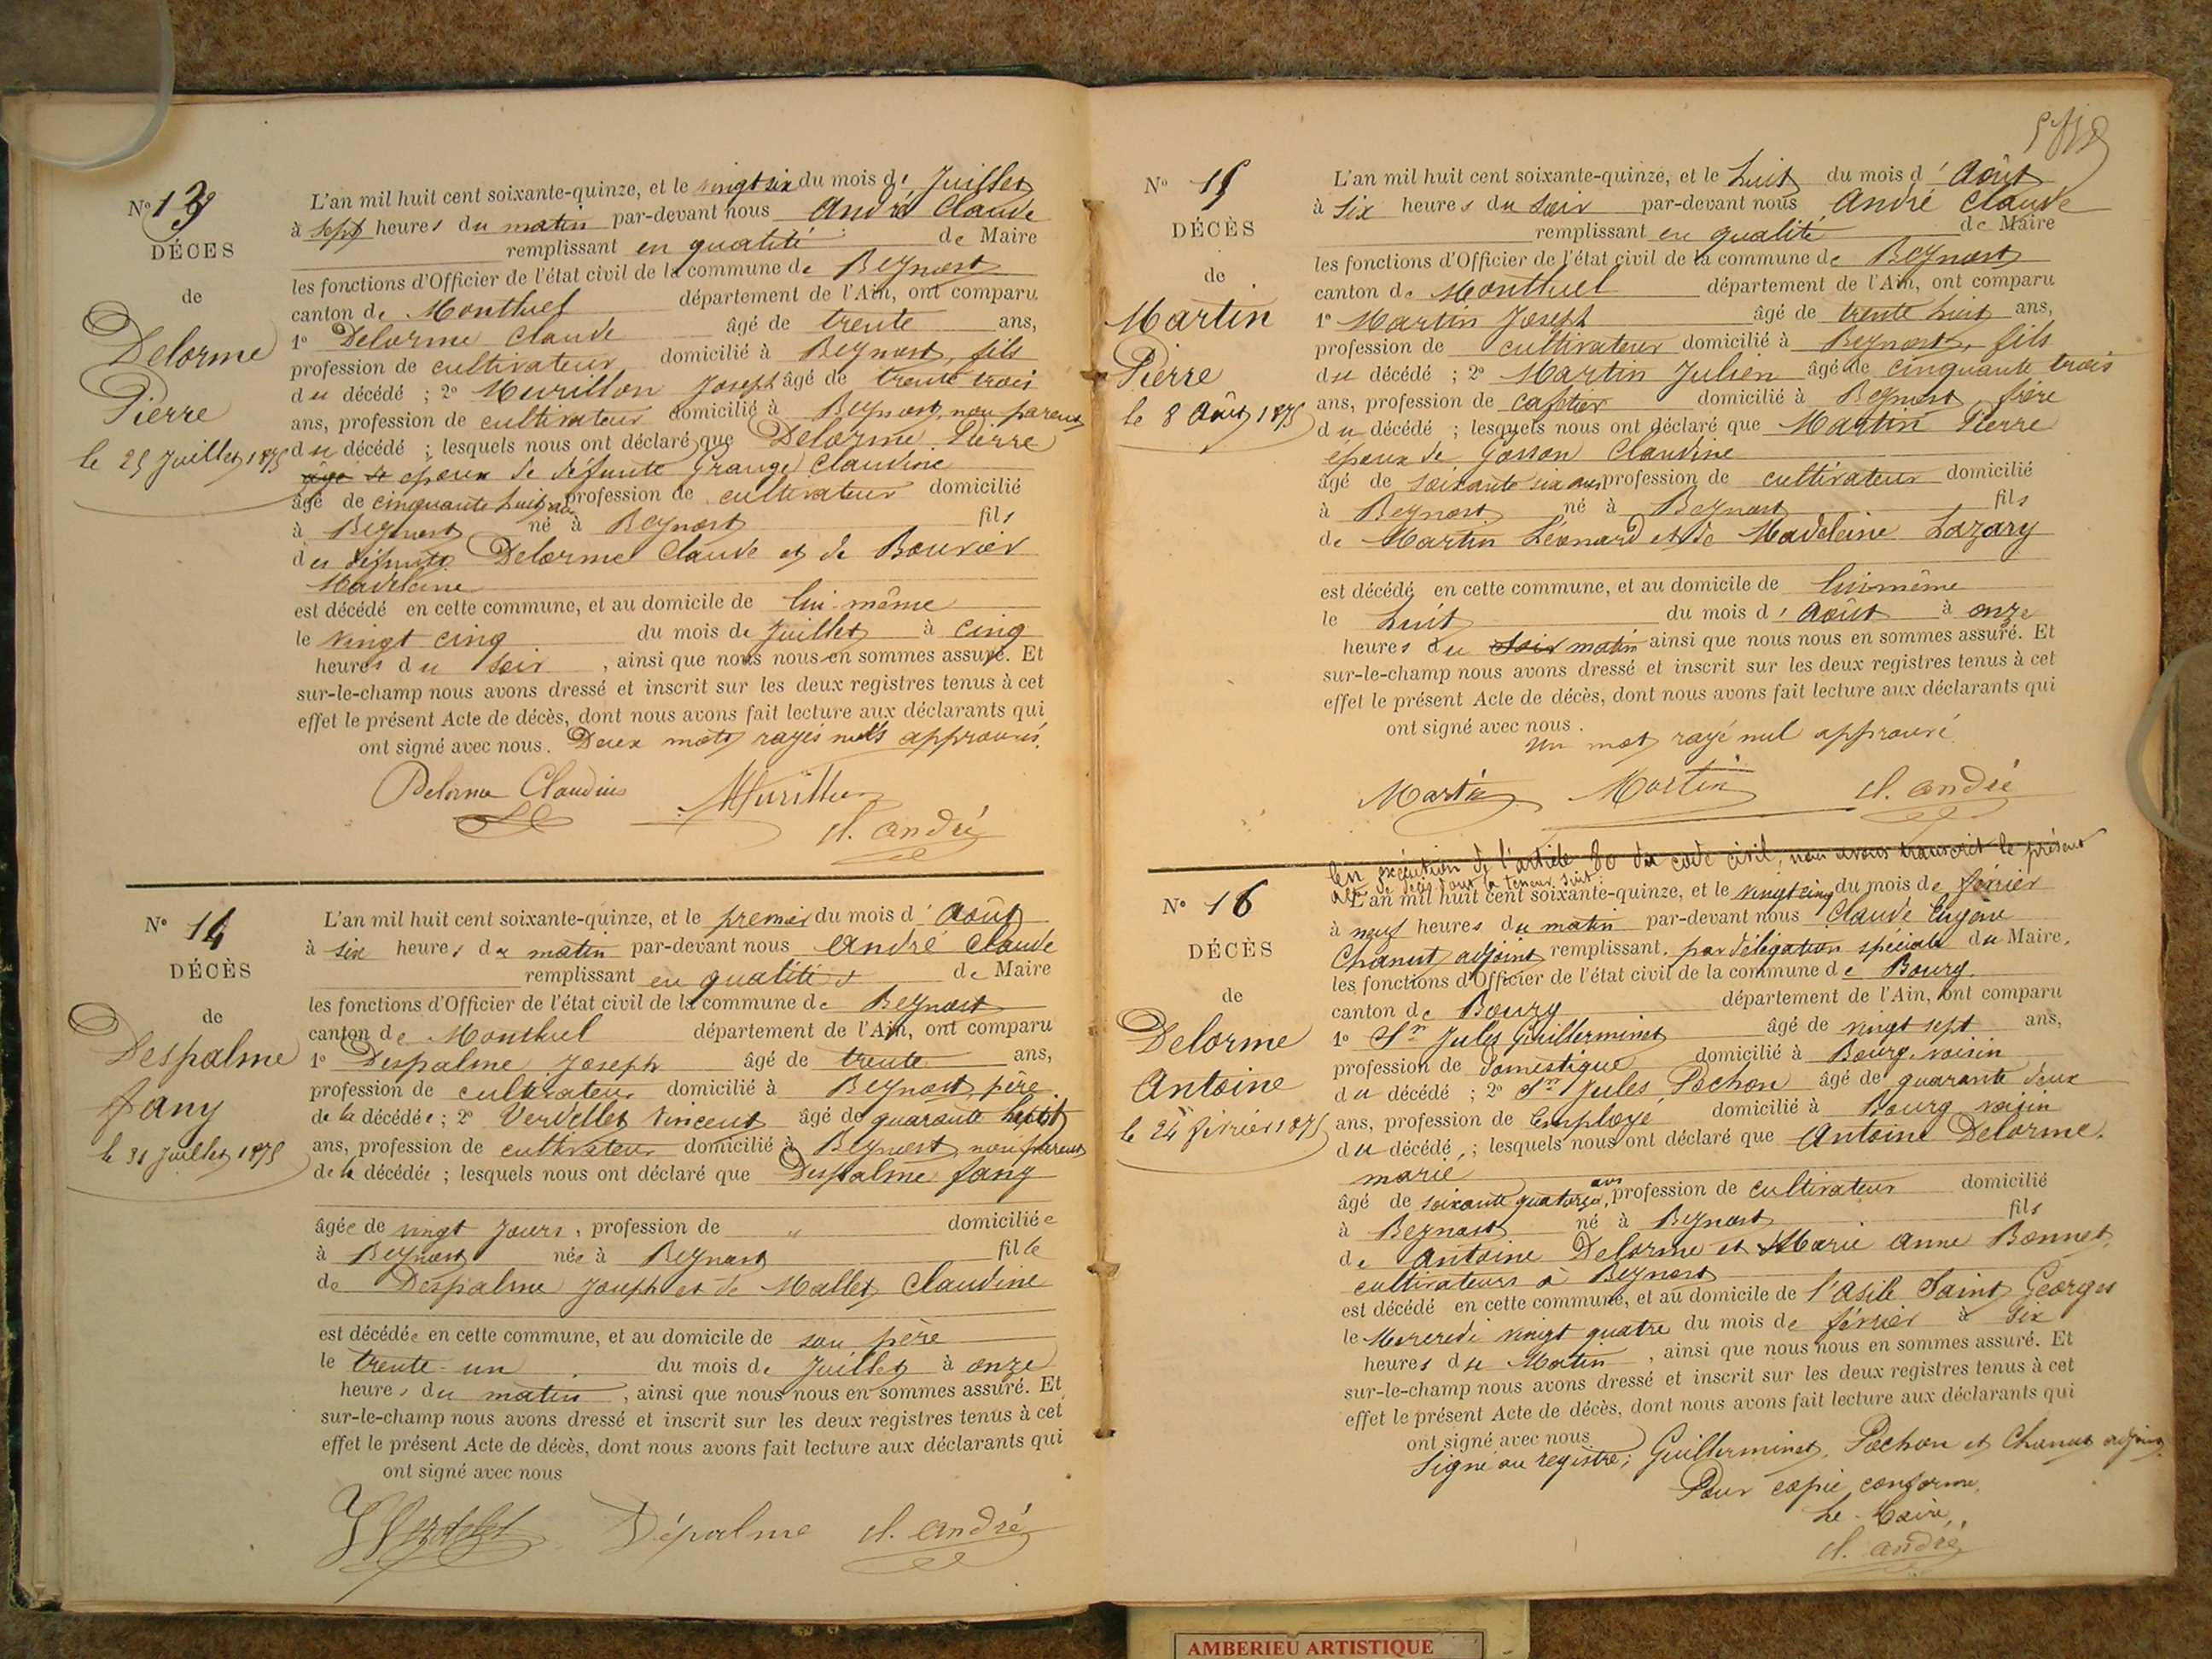 No 13
DÉCES
de
Delorme
Pierre
le 25 Juillet 1875
L'an mil huit cent soixante-quinze, et le vingt six du mois de Juillet
à sept heures du matin par-devant nous André Claude
remplissant en qualité de Maire
les fonctions d'Officier de l'état civil de la commune de Beynost
canton de Montluel département de l'Ain, ont comparu
1o Delorme Claude âgé de trente ans,
profession de cultivateur domicilié à Beynost, fils
du décédé ; 2o Murillon Joseph âgé de trente trois
ans, profession de cultivateur domicilié à Beynost, non parent
du décédé ; lesquels nous ont déclaré que Delorme Pierre
âgé de époux de défunte Grange Claudine
âgé de cinquante huit ans profession de cultivateur domicilié
à Beynost né à Beynost fils
des défunts Delorme Claude et de Bouvier
Madeleine
est décédé en cette commune, et au domicile de lui-même
le vingt cinq du mois de Juillet à cinq
heures du soir , ainsi que nous nous en sommes assuré. Et
sur-le-champ nous avons dressé et inscrit sur les deux registres tenus à cet
effet le présent Acte de décès, dont nous avons fait lecture aux déclarants qui
ont signé avec nous. Deux mots rayés nuls approuvés.
Delorme Claudius Murillon
Cl. André
No 14
DÉCÈS
de
Despalme
fany
le 31 Juillet 1875
L'an mil huit cent soixante-quinze, et le premier du mois d'Août
à six heures du matin par-devant nous André Claude
remplissant en qualité de Maire
les fonctions d'Officier de l'état civil de la commune de Beynost
canton de Montluel département de l'Ain, ont comparu
1o Despalme Joseph âgé de trente ans,
profession de cultivateur domicilié à Beynost, père
de la décédée ; 2o Verdellet Vincent âgé de quarante huit
ans, profession de cultivateur domicilié à Beynost, non parent
de la décédée ; lesquels nous ont déclaré que Despalme fany
âgée de vingt jours, profession de " domiciliée
à Beynost née à Beynost fille
de Despalme Joseph et de Mallet Claudine
est décédée en cette commune, et au domicile de son père
le trente-un du mois de Juillet à onze
heures du matin , ainsi que nous nous en sommes assuré. Et
sur-le-champ nous avons dressé et inscrit sur les deux registres tenus à cet
effet le présent Acte de décès, dont nous avons fait lecture aux déclarants qui
ont signé avec nous
Dépalme Cl. André
No 15
DÉCÈS
de
Martin
Pierre
le 8 Août 1875
L'an mil huit cent soixante-quinze, et le huit du mois d'Août
à six heures du soir par-devant nous André Claude
remplissant en qualité de Maire
les fonctions d'Officier de l'état civil de la commune de Beynost
canton de Montluel département de l'Ain, ont comparu
1o Martin Joseph âgé de trente huit ans,
profession de cultivateur domicilié à Beynost, fils
du décédé ; 2o Martin Julien âgé de cinquante trois
ans, profession de cafetier domicilié à Beynost, frère
du décédé ; lesquels nous ont déclaré que Martin Pierre
époux de Gosson Claudine
âgé de soixante six ans profession de cultivateur domicilié
à Beynost né à Beynost fils
de Martin Léonard et de Madeleine Lazary
est décédé en cette commune, et au domicile de lui-même
le huit du mois d'Août à onze
heures du soir matin ainsi que nous nous en sommes assuré. Et
sur-le-champ nous avons dressé et inscrit sur les deux registres tenus à cet
effet le présent Acte de décès, dont nous avons fait lecture aux déclarants qui
ont signé avec nous.
Un mot rayé nul approuvé
Martin Martin Cl. André
No 16
DÉCÈS
de
Delorme
Antoine
le 24 février 1875
En exécution de l'article 80 du code civil, nous avons transcrit le présent
acte de décès dont la teneur suit:
L'an mil huit cent soixante-quinze, et le vingt cinq du mois de février
à neuf heures du matin par-devant nous Claude Eugène
Chanut adjoint remplissant, par délégation spéciale du Maire,
les fonctions d'Officier de l'état civil de la commune de Bourg.
canton de Bourg département de l'Ain, ont comparu
1o Sr Jules Guillerminet âgé de vingt sept ans,
profession de domestique domicilié à Bourg, voisin
du décédé ; 2o Sr Jules Pochon âgé de quarante deux
ans, profession de Employé domicilié à Bourg voisin
du décédé, ; lesquels nous ont déclaré que Antoine Delorme,
marié
âgé de soixante quatorze ans, profession de cultivateur domicilié
à Beynost né à Beynost fils
de Antoine Delorme et Marie Anne Bonnet,
cultivateurs à Beynost
est décédé en cette commune, et au domicile de l'asile Saint Georges
le Mercredi vingt quatre du mois de février à six
heures du Matin , ainsi que nous nous en sommes assuré. Et
sur-le-champ nous avons dressé et inscrit sur les deux registres tenus à cet
effet le présent Acte de décès, dont nous avons fait lecture aux déclarants qui
ont signé avec nous
Signé au registre; Guillerminet, Pochon et Chanut adjoint
Pour copie conforme,
Le Maire,
Cl. André
AMBERIEU ARTISTIQUE